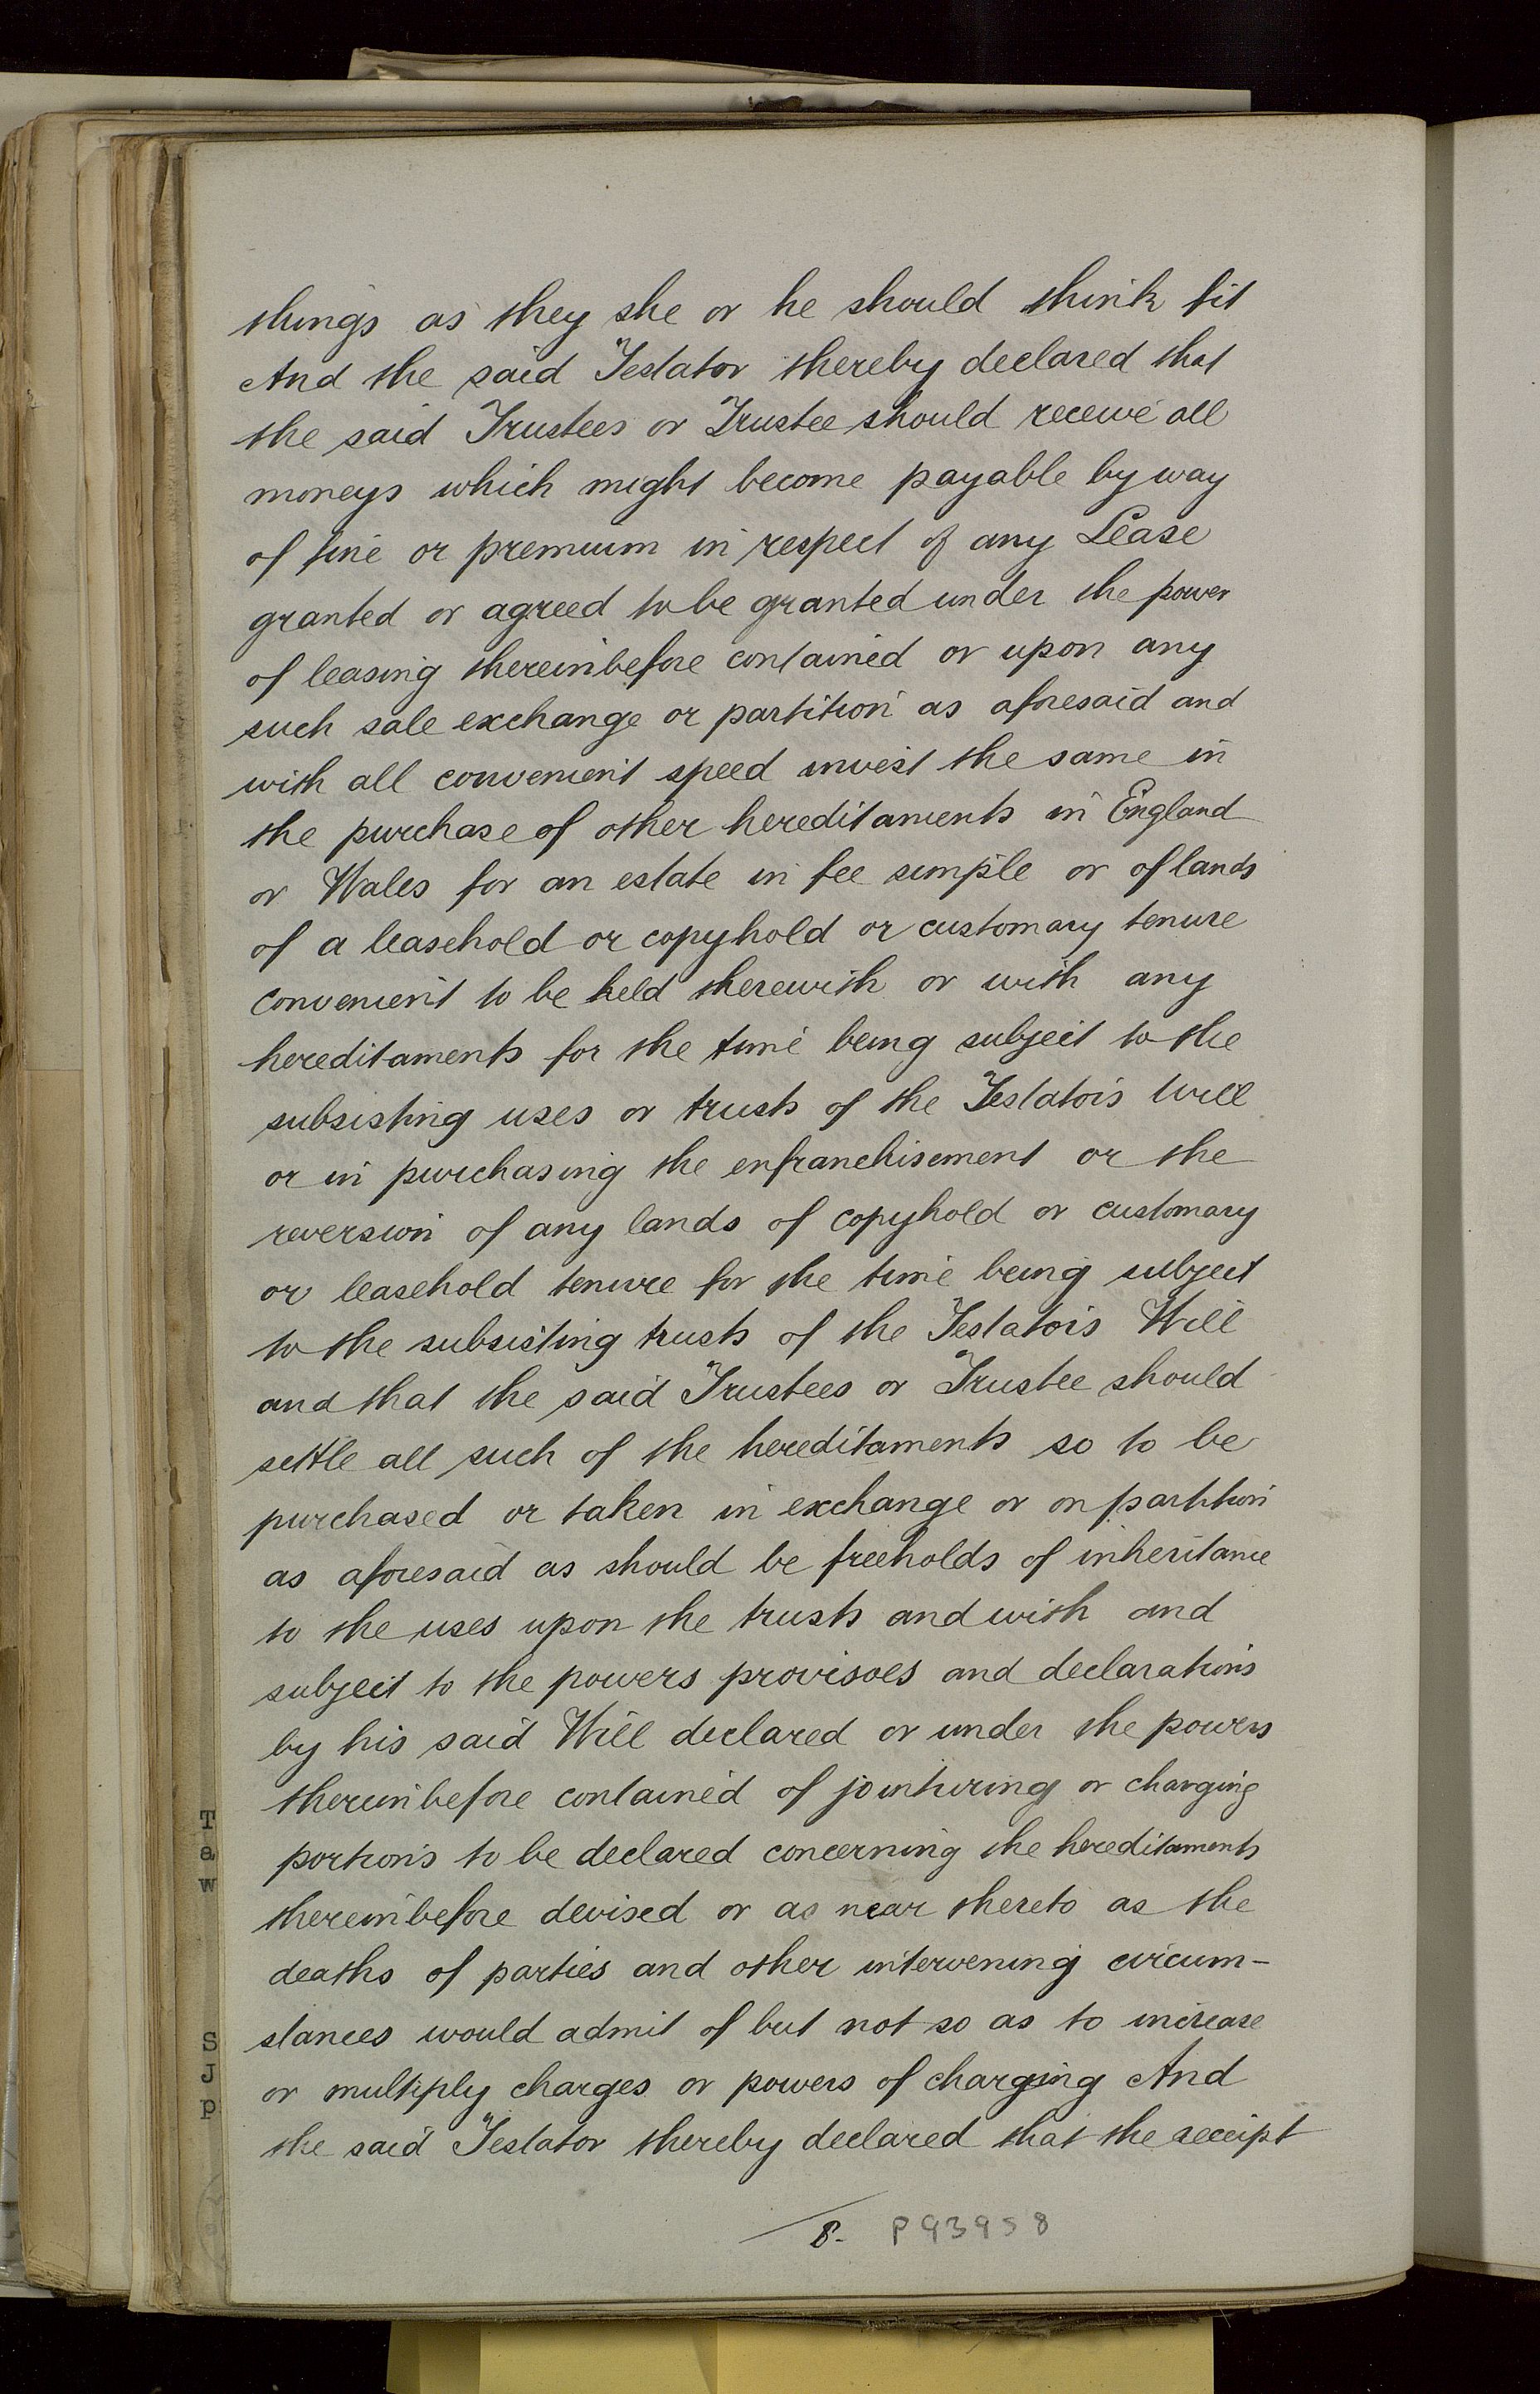 things as they she or he should think fit
And the said Testator thereby declared that
the said Trustees or Trustee should receive all
moneys which might become payable by way
of fine or premium in respect of any Lease
granted or agreed to be granted under the power
of leasing thereinbefore contained or upon any
such sale exchange or partition as aforesaid and
with all convenient speed invest the same in
the purchase of other hereditaments in England
or Wales for an estate in fee simple or of lands
of a leasehold or copyhold or customary tenure
convenient to be held therewith or with any
hereditaments for the time being subject to the
subsisting uses or trusts of the Testator's Will
or in purchasing the enfranchisement or the
reversion of any lands of copyhold or customary
or leasehold tenure for the time being subject
to the subsisting trusts of the Testator's Will
and that the said Trustees or Trustee should
settle all such of the hereditaments so to be
purchased or taken in exchange or on partition
as aforesaid as should be freeholds of inheritance
to the uses upon the trusts and with and
subject to the powers provisoes and declarations
by his said Will declared or under the powers
thereinbefore contained of jointuring or charging
portions to be declared concerning the hereditaments
thereinbefore devised or as near thereto as the
deaths of parties and other intervening circum-
stances would admit of but not so as to increase
or multiply charges or powers of charging And
the said Testator thereby declared that the receipt
8. P93958
T
a
w
S
J
p